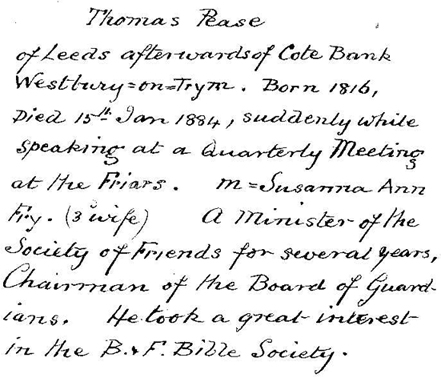 Thomas Pease
of Leeds afterwards of Cote Bank
Westbury=on=Trym. Born 1816,
Died 15th Jan 1884, suddenly while
speaking at a Quarterly Meeting
at the Friars. m=Susanna Ann
Fry. (3d wife) A Minister of the
Society of Friends for several years,
Chairman of the Board of Guard-
ians. He took a great interest
in the B. & F. Bible Society.